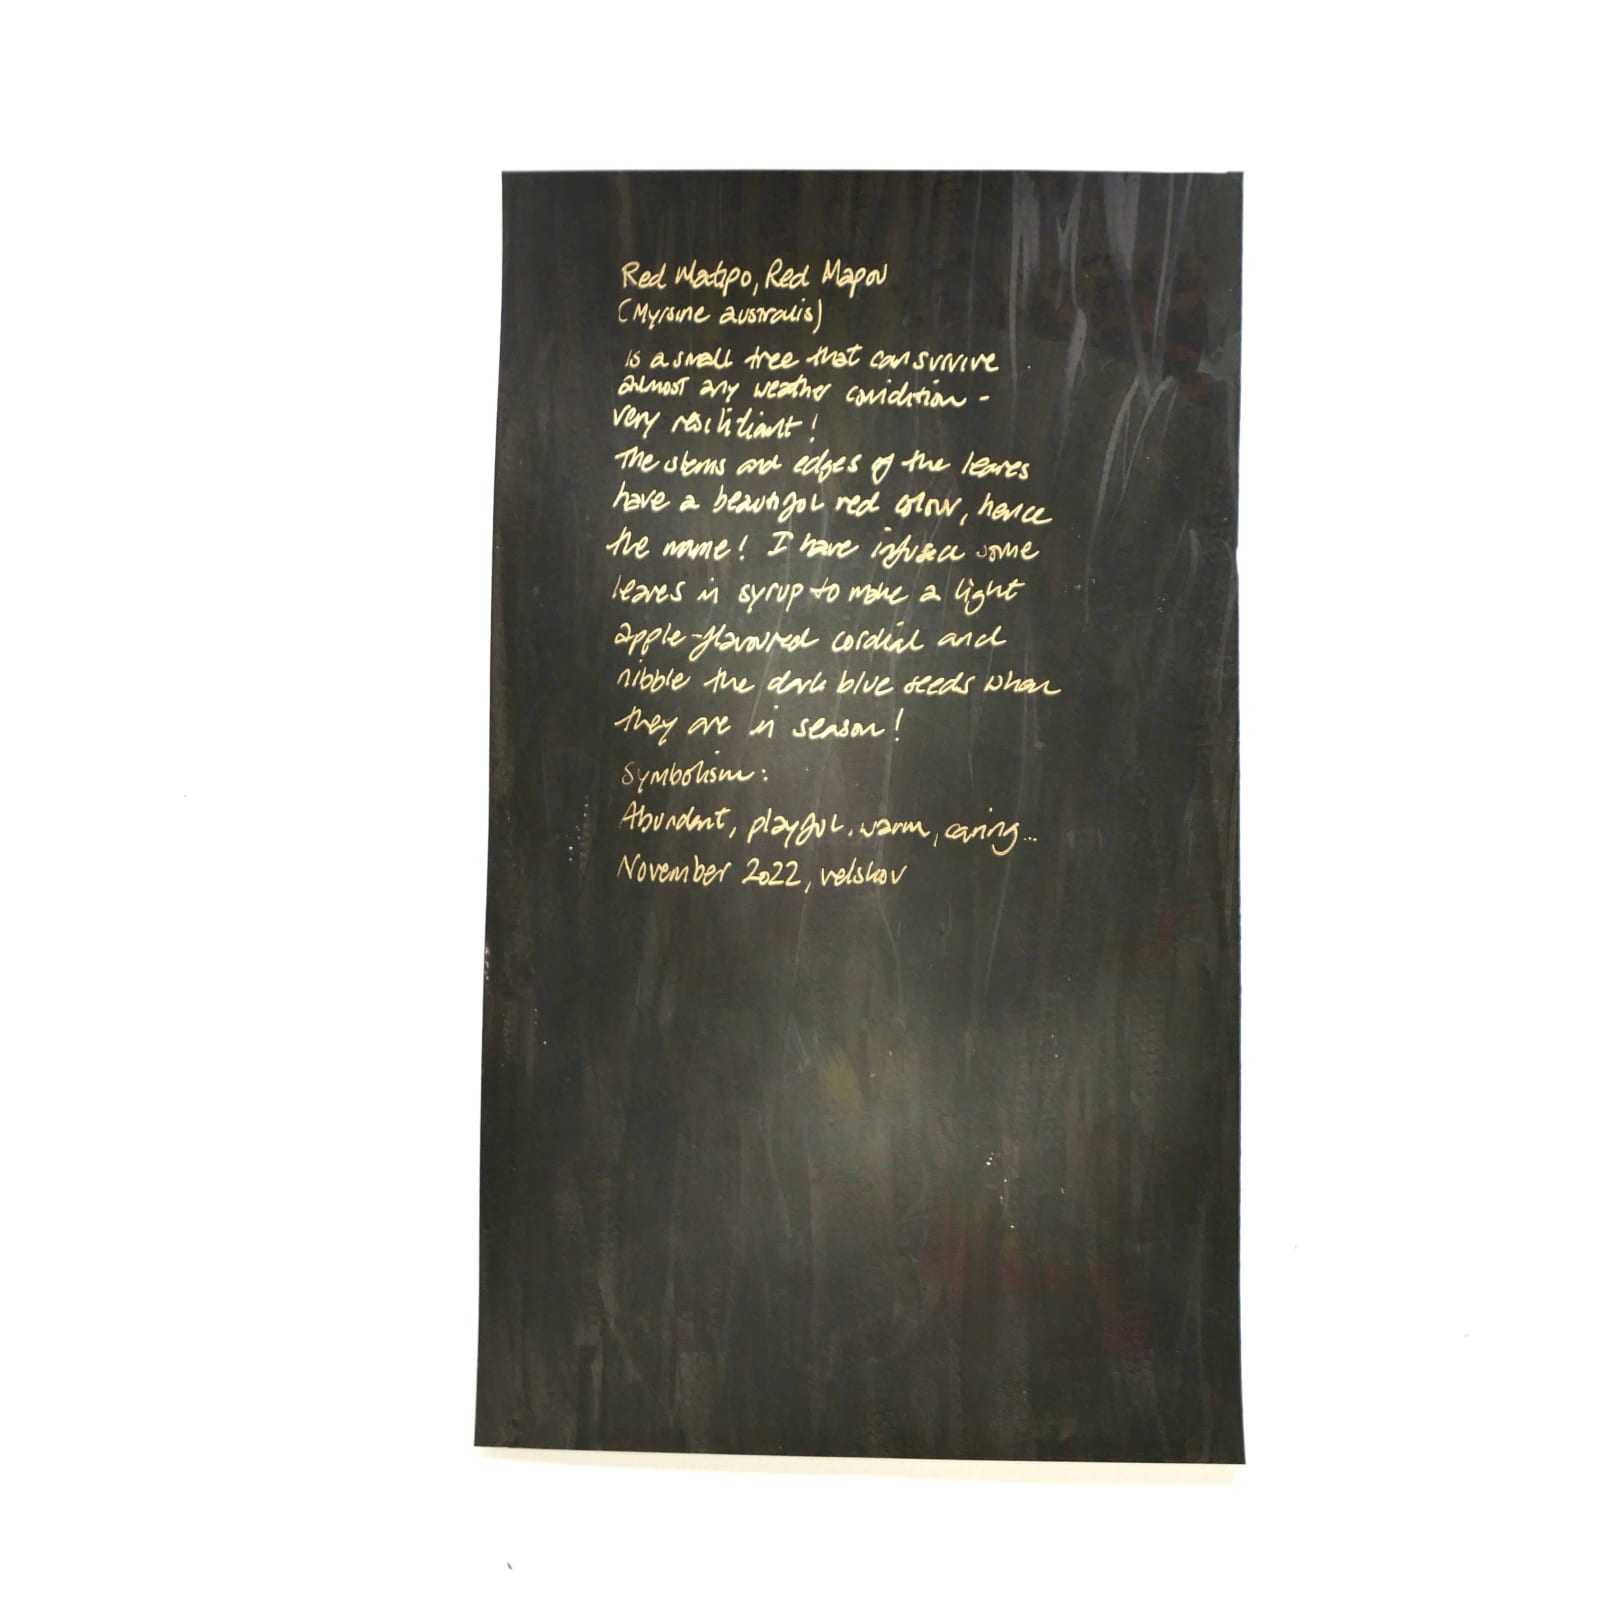 Red Matipo, Red Mapou
(Myrsine australis)
is a small tree that can survive
almost any weather condition -
very resilitiant!
The stems and edges of the leaves
have a beautiful red colour, hence
the name! I have infused some
leaves in syrup to make a light
apple-flavoured cordial and
nibble the dark blue seeds when
they are in season!
Symbolism:
Abundant, playful, warm, caring...
November 2022, velskov